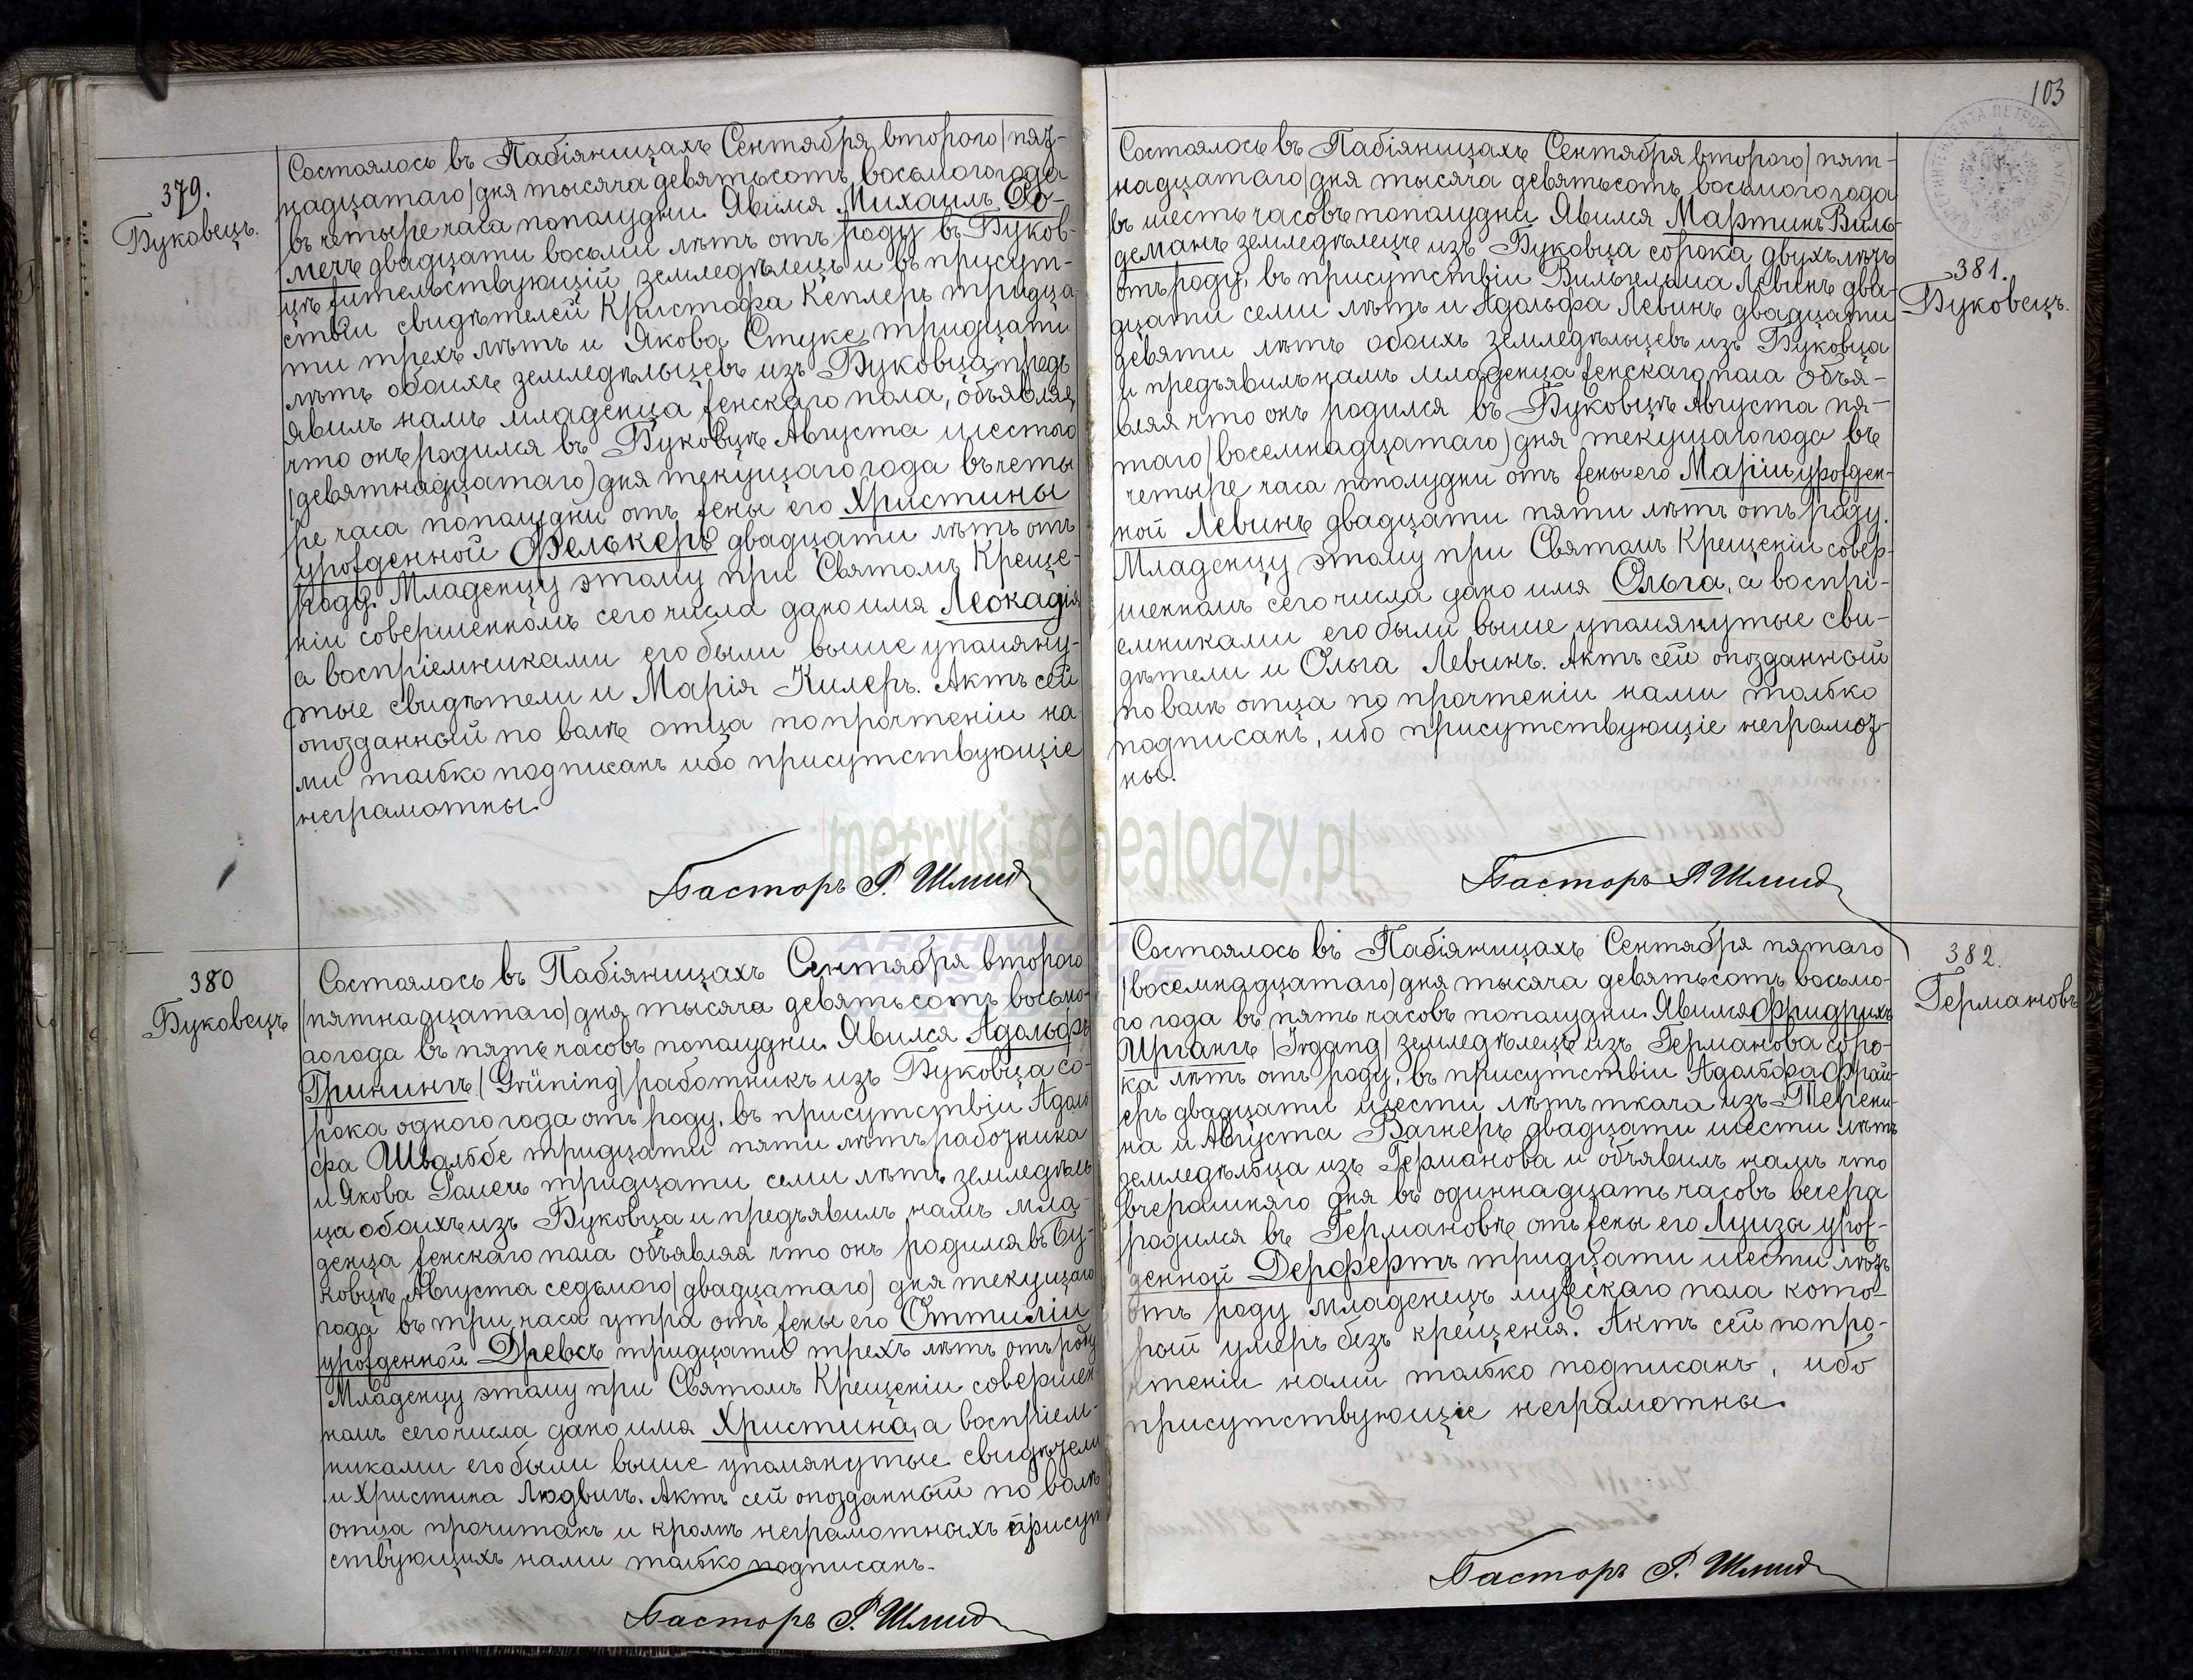 379.
Буковецъ.
Состоялось въ Пабіяницахъ Сентября второго/пят-
надцатаго/дня тысяча девятьсотъ восьмого года
въ четыре часа пополудни. Явился Михаилъ Ро-
мечъ двадцати восьми лѣтъ отъ роду въ Буков-
цѣ жительствующій земледѣлецъ и въ присут-
ствіи свидѣтелей Кристофа Кеплеръ тридца-
ти трехъ лѣтъ и Якова Стуке тридцати
лѣтъ обоихъ земледѣльцевъ изъ Буковца предъ
явилъ намъ младенца женскаго пола, объявляя
что онъ родился въ Буковцѣ Августа шестого
/девятнадцатаго/дня текущаго года въ четы
ре часа пополудни отъ жены его Христины
урожденной Фелькеръ двадцати лѣтъ отъ
роду. Младенцу этому при Святомъ Креще-
ніи совершенномъ сего числа дано имя Леокадія
а воспріемниками его были выше упомяну-
тые свидѣтели и Марія Килеръ. Актъ сей
опозданный по волѣ отца по прочтеніи на-
ми только подписанъ ибо присутствующіе
неграмотны.
Пасторъ Р. Шмидъ
380
Буковецъ
Состоялось въ Пабіяницахъ Сентября второго
/пятнадцатаго/дня тысяча девятьсотъ восьмо-
аогода въ пять часовъ пополудни. Явился Адольфъ
Гринингъ /Grüning/ работникъ изъ Буковца со-
рока одного года отъ роду, въ присутствіи Адоль
фа Швальбе тридцати пяти лѣтъ работника
и Якова Гамечъ тридцати семи лѣтъ земледѣль
ца обоихъ изъ Буковца и предъявилъ намъ мла-
денца женскаго пола объявляя что онъ родился въ Бу-
ковцѣ Августа седьмого/двадцатаго/ дня текущаго
года въ три часа утра отъ жены его Оттиліи
урожденной Древсъ тридцати трехъ лѣтъ отъ роду
Младенцу этому при Святомъ Крещеніи совершен
номъ сего числа дано имя Христина, а воспріем-
никами его были выше упомянутые свидѣтели
и Христина Людвигъ. Актъ сей опозданный по волѣ
отца прочитанъ и кромѣ неграмотныхъ присут
ствующихъ нами только подписанъ.
Пасторъ Р. Шмидъ
103
381.
Буковецъ.
Состоялось въ Пабіяницахъ Сентября второго/пят-
надцатаго/дня тысяча девятьсотъ восьмого года
въ шесть часовъ пополудни Явился Мартинъ Виль-
деманъ земледѣлецъ изъ Буковца сорока двухъ лѣтъ
отъ роду, въ присутствіи Вильгельма Левинъ два-
дцати семи лѣтъ и Адольфа Левинъ двадцати
девяти лѣтъ обоихъ земледѣльцевъ изъ Буковца
и предъявилъ намъ младенца женскаго пола объя-
вляя что онъ родился въ Буковцѣ Августа пя-
таго/восемнадцатаго/дня текущаго года въ
четыре часа пополудни отъ жены его Маріи урожден-
ной Левинъ двадцати пяти лѣтъ отъ роду.
Младенцу этому при Святомъ Крещеніи совер-
шенномъ сего числа дано имя Ольга, а воспрі-
емниками его были выше упомянутые сви-
дѣтели и Ольга Левинъ. Актъ сей опозданный
по волѣ отца по прочтеніи нами только
подписанъ, ибо присутствующіе неграмот-
ны.
Пасторъ Р. Шмидъ
382.
Германовъ
Состоялось въ Пабіяницахъ Сентября пятаго
/восемнадцатаго/дня тысяча девятьсотъ восьмо-
го года въ пять часовъ пополудни. Явился Фридрихъ
Иргангъ /Irgang/ земледѣлецъ изъ Германова соро-
ка лѣтъ отъ роду, въ присутствіи Адольфа Край-
еръ двадцати шести лѣтъ ткача изъ Терени-
на и Августа Вагнеръ двадцати шести лѣтъ
земледѣльца изъ Германова и объявилъ намъ что
вчерашняго дня въ одиннадцать часовъ вечера
родился въ Германовѣ отъ жены его Луизы урож-
денной Дерфертъ тридцати шести лѣтъ
отъ роду младенецъ мужескаго пола кото-
рый умеръ безъ крещенія. Актъ сей по про-
чтеніи нами только подписанъ, ибо
присутствующіе неграмотны.
Пасторъ Р. Шмидъ
metryki.genealodzy.pl